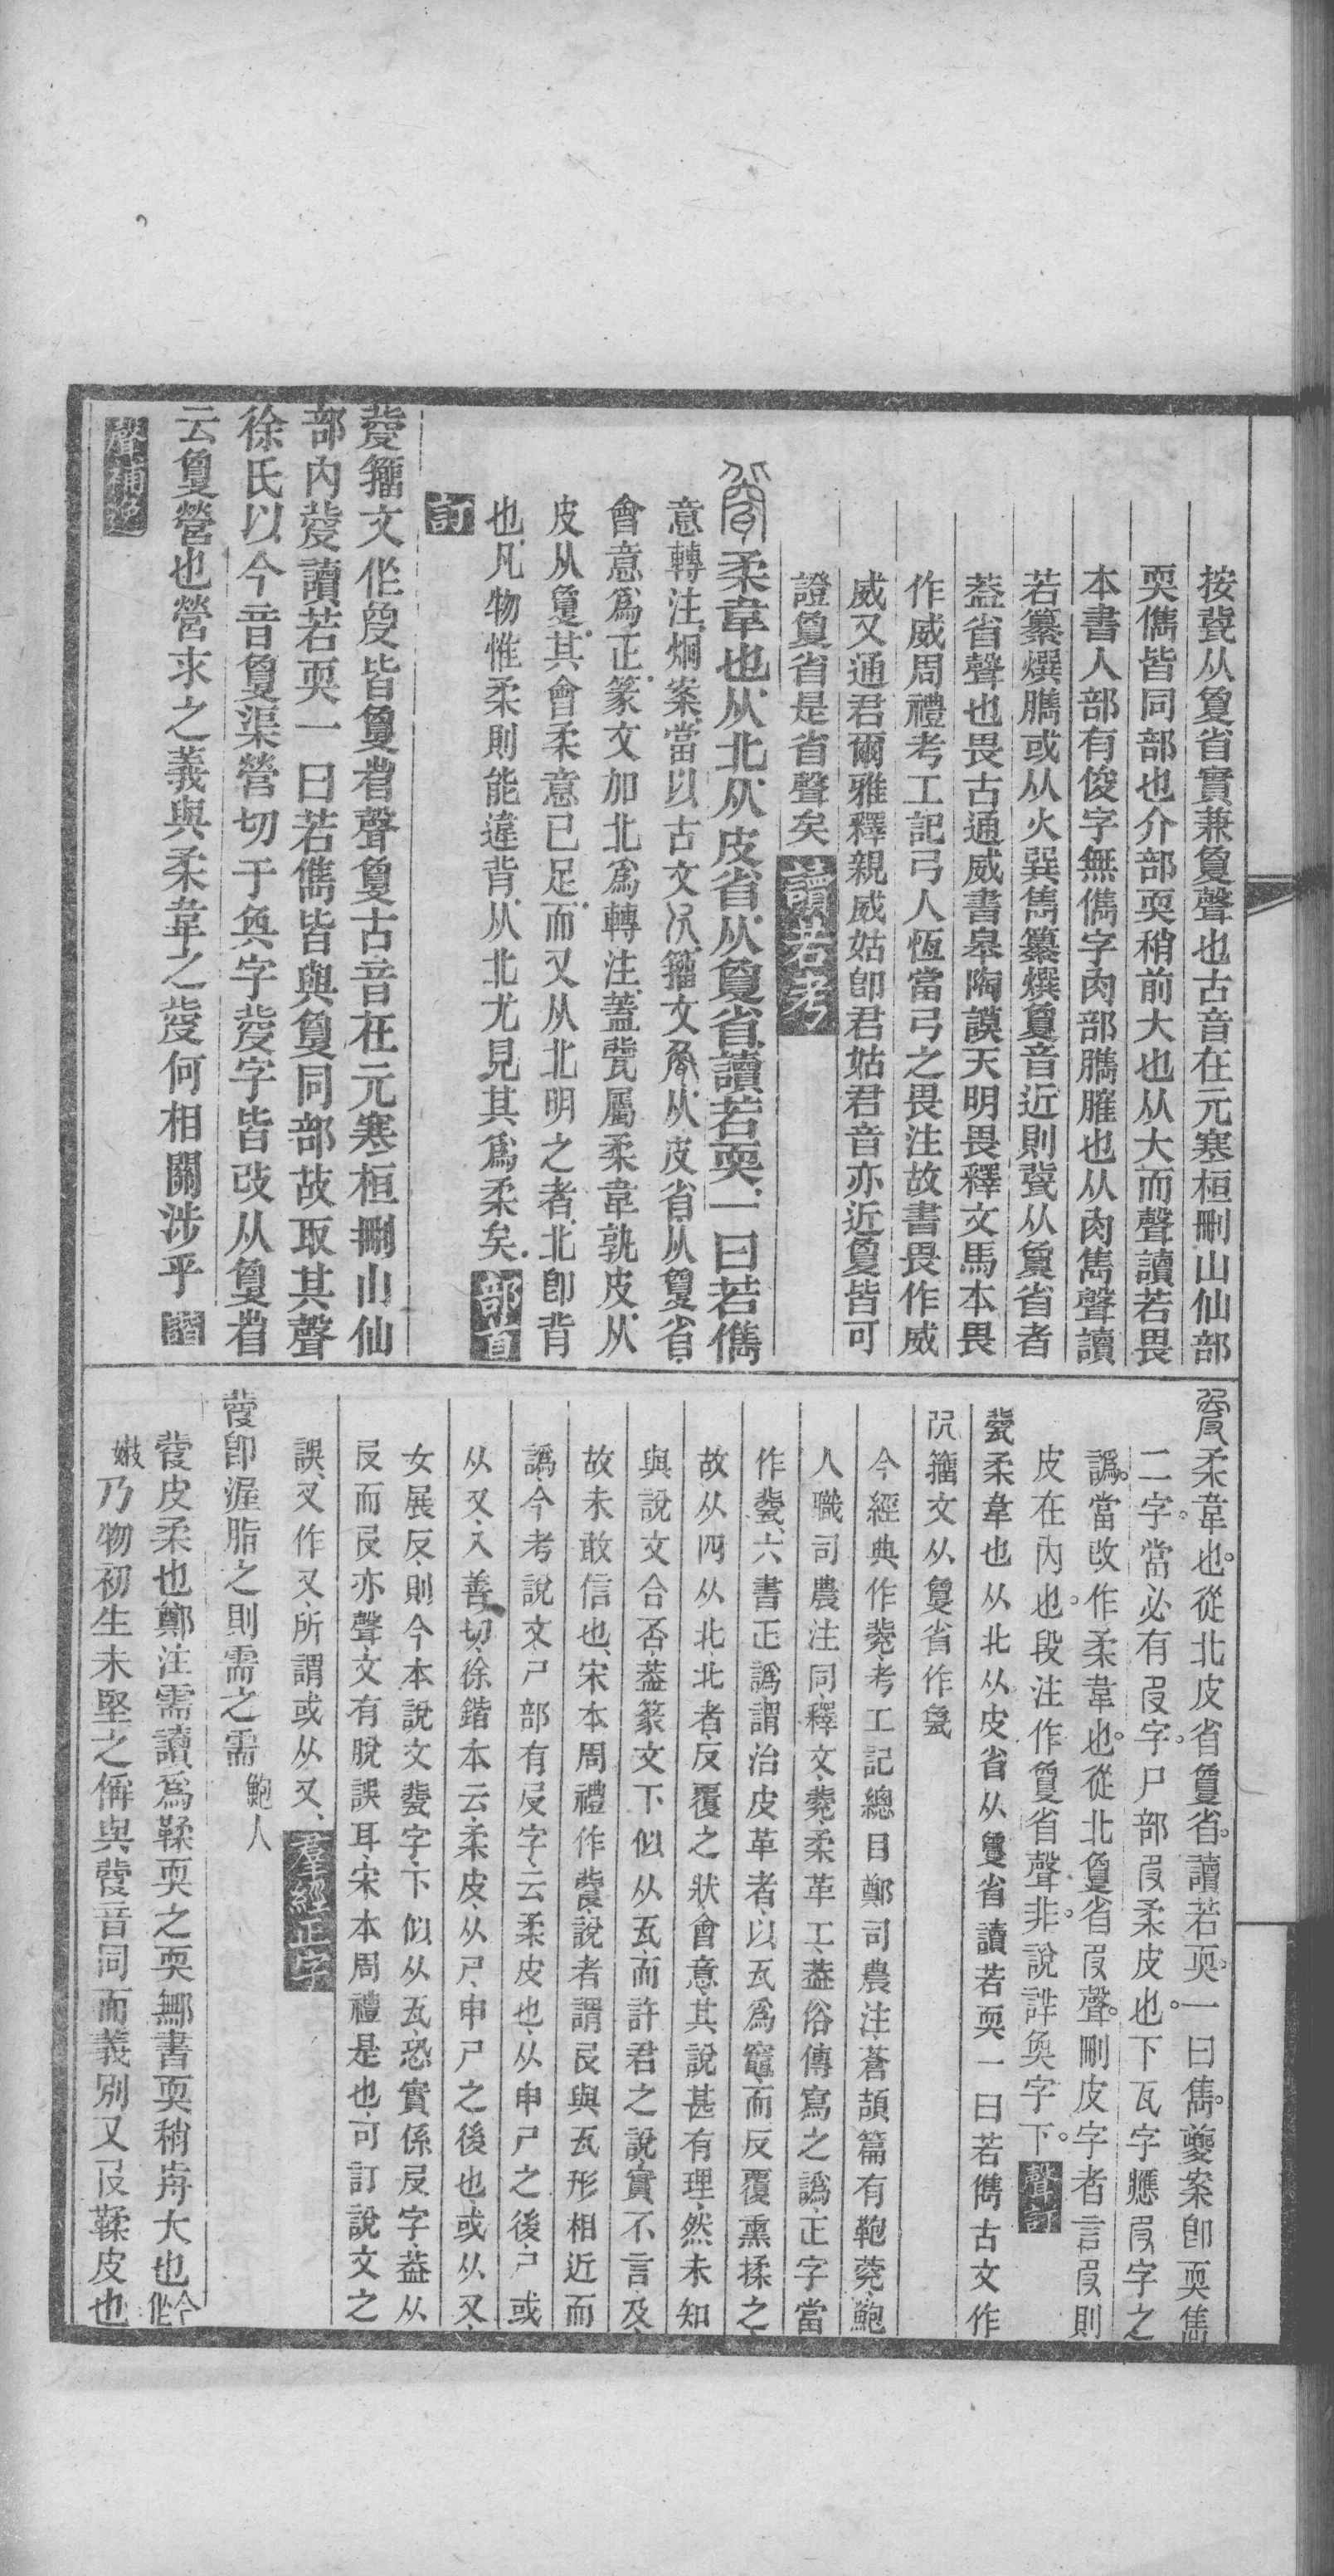 按㼱从敻省實兼敻聲也古音在元寒桓刪山仙部
耎儁皆同部也介部耎稍前大也从大而聲讀若畏
本書人部有俊字無儁字肉部臇臛也从肉雋聲讀
若纂熼臇或从火巽雋纂熼敻音近則㼱从敻省者
葢省聲也畏古通威書皋陶謨天明畏釋文馬本畏
作威周禮考工記弓人恆當弓之畏注故書畏作威
威又通君爾雅釋親威姑卽君姑君音亦近敻皆可
證敻省是省聲矣讀若考
柔韋也从北从皮省从敻省讀若耎一曰若儁
意轉注炯案當以古文籀文从皮省从敻省
會意爲正篆文加北爲轉注蓋㼱屬柔韋孰皮从
皮从敻其會柔意已足而又从北明之者北卽背
也凡物惟柔則能違背从北尤見其爲柔矣部首
訂
㼱籀文作皆敻省聲敻古音在元寒桓刪山仙
部內㼱讀若耎一曰若儁皆與敻同部故取其聲
徐氏以今音敻渠營切于奐字㼱字皆改从敻省
云敻營也營求之義與柔韋之㼱何相關涉乎諧
聲補逸
柔韋也從北皮省敻省讀若耎一曰雋夔案卽耎雋
二字當必有㞋字尸部㞋柔皮也下瓦字應㞋字之
譌當改作柔韋也從北敻省㞋聲刪皮字者言㞋則
皮在內也段注作敻省聲非說詳奐字下聲訂
㼱柔韋也从北从皮省从敻省讀若耎一曰若雋古文作
籀文从敻省作
今經典作㼱考工記總目鄭司農注蒼頡篇有鞄㼱鮑
人職司農注同釋文㼱柔革工葢俗傳寫之譌正字當
作㼱六書正譌謂治皮革者以瓦爲竈而反覆熏揉之
故从四从北北者反覆之狀會意其說甚有理然未知
與說文合否葢篆文下似从瓦而許君之說實不言及
故未敢信也宋本周禮作㼱說者謂㞋與瓦形相近而
譌今考說文尸部有㞋字云柔皮也从申尸之後尸或
从又入善切徐鍇本云柔皮从尸申尸之後也或从又
女展反則今本說文㼱字下似从瓦恐實係㞋字葢从
㞋而㞋亦聲文有脫誤耳宋本周禮是也可訂說文之
誤又作又所謂或从又羣經正字
㼱卽渥脂之則需之需鮑人
㼱皮柔也鄭注需讀爲鞣耎之耎鄦書耎稍歬大也今作
嫩乃物初生未堅之偁與㼱音同而義別又㞋鞣皮也